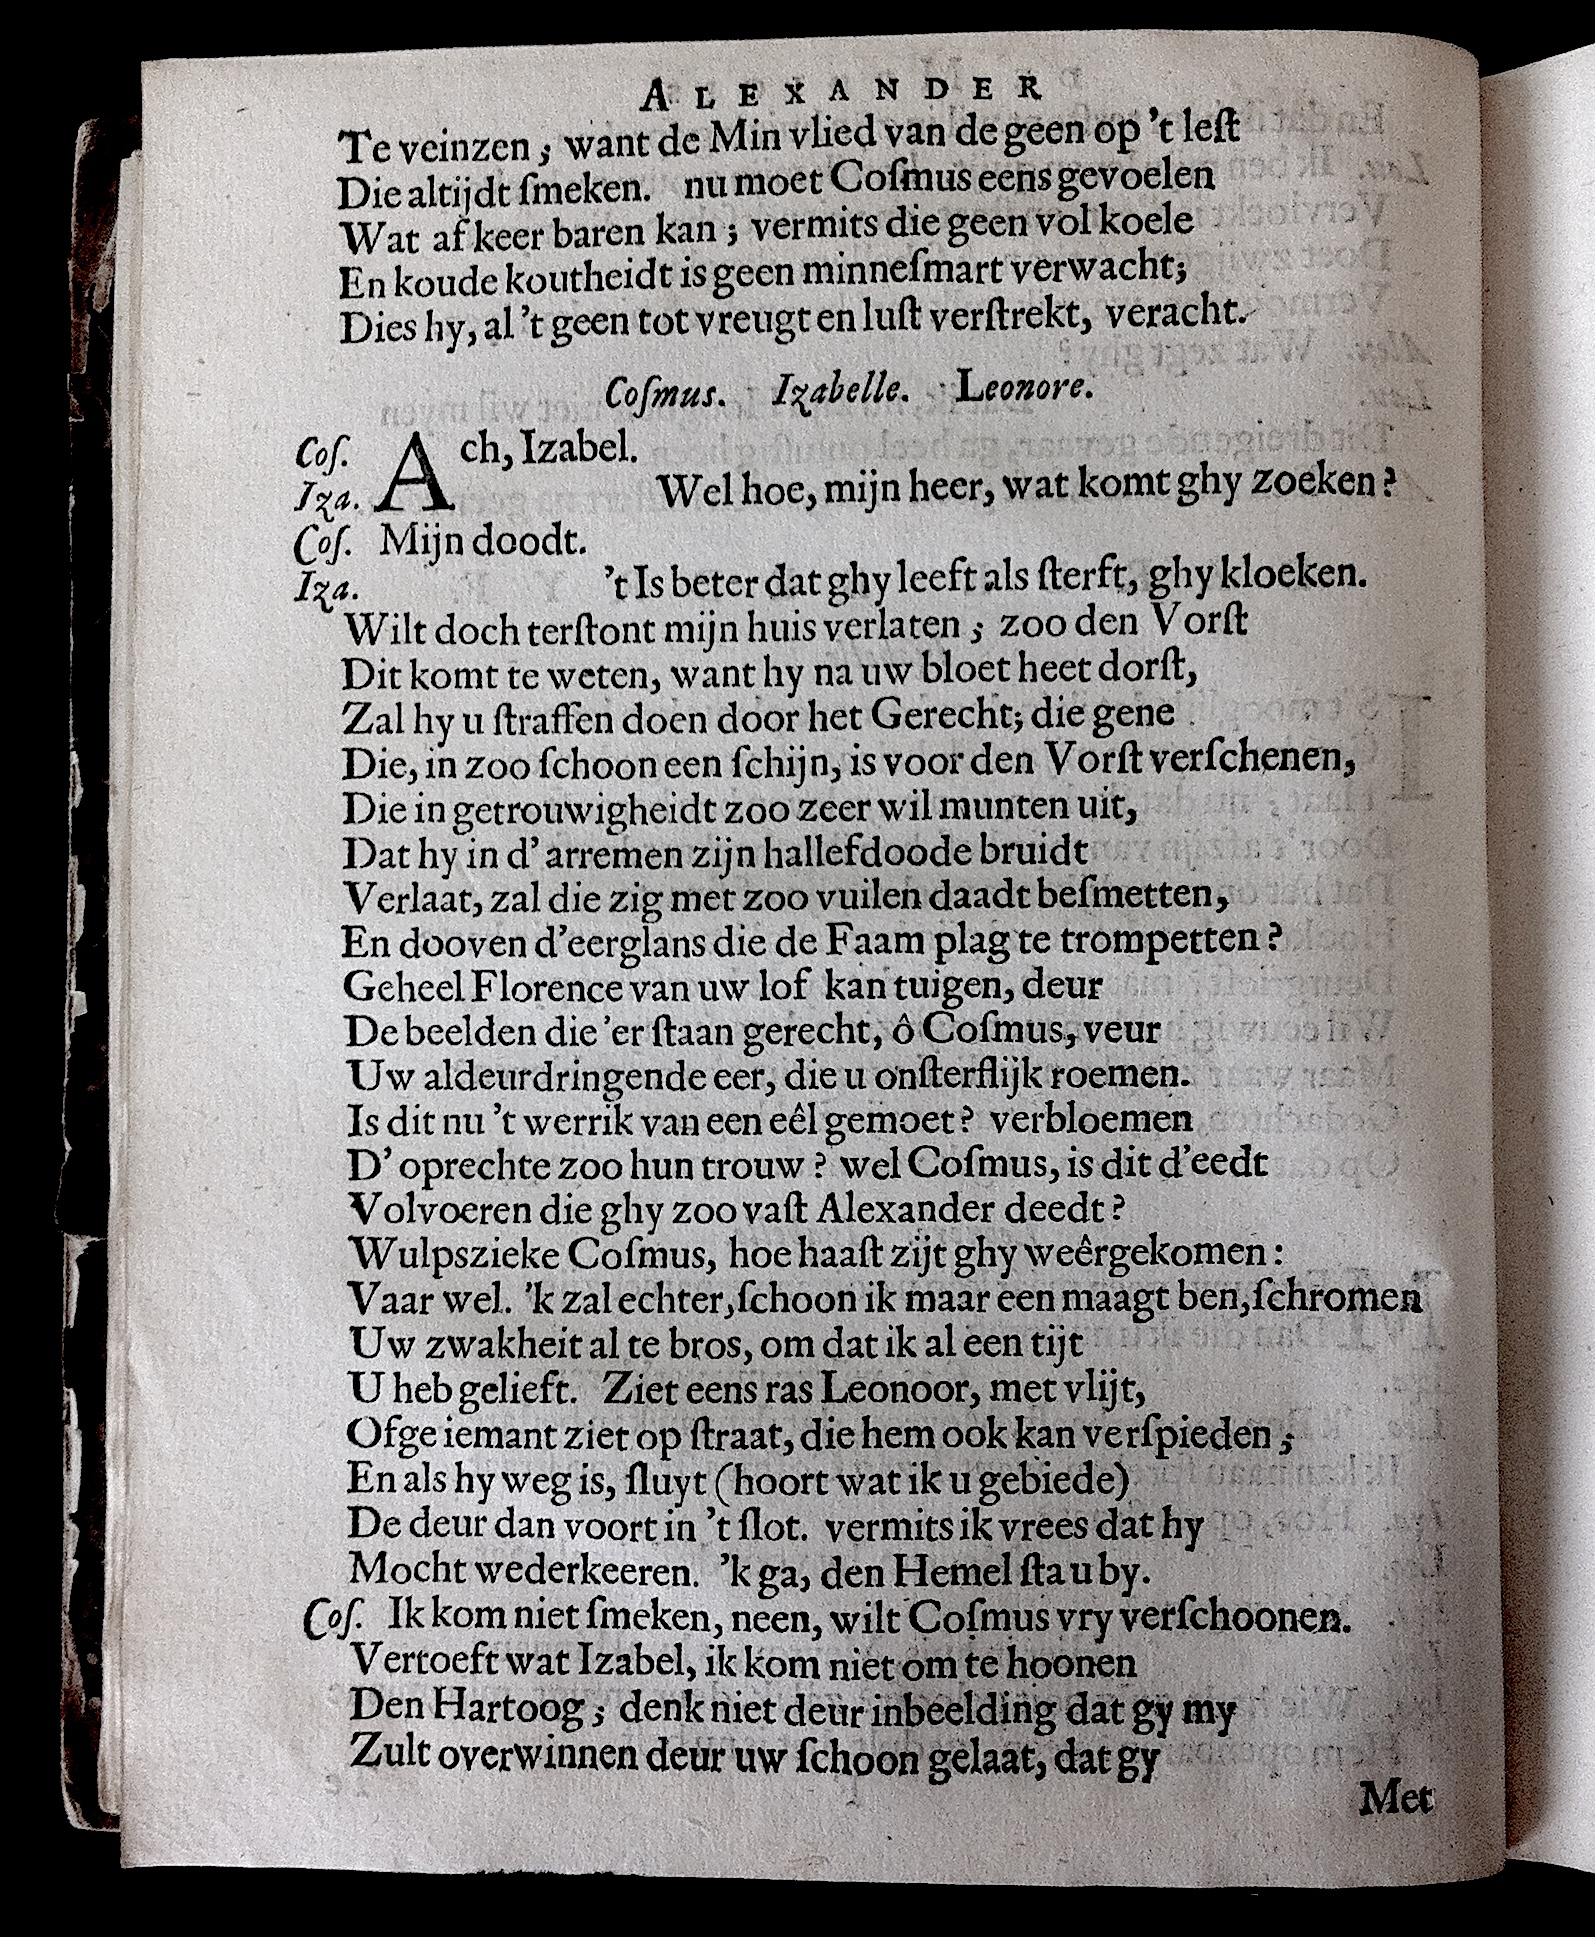 ALEXANDER
Te veinzen; want de Min vlied van de geen op 't leſt
Die altijdt ſmeken. nu moet Coſmus eens gevoelen
Wat afkeer baren kan; vermits die geen vol koele
En koude koutheidt is geen minneſmart verwacht;
Dies hy, al 't geen tot vreugt en luſt verſtrekt, veracht.
Coſmus. Izabelle. Leonore.
Coſ. Ach, Izabel.
Iza. Wel hoe, mijn heer, wat komt ghy zoeken?
Coſ. Mijn doodt.
Iza. 't Is beter dat ghy leeft als ſterft, ghy kloeken.
Wilt doch terſtont mijn huis verlaten; zoo den Vorſt
Dit komt te weten, want hy na uw bloet heet dorſt,
Zal hy u ſtraffen doen door het Gerecht; die gene
Die, in zoo ſchoon een ſchijn, is voor den Vorſt verſchenen,
Die in getrouwigheidt zoo zeer wil munten uit,
Dat hy in d' arremen zijn hallefdoode bruidt
Verlaat, zal die zig met zoo vuilen daadt beſmetten,
En dooven d'eerglans die de Faam plag te trompetten?
Geheel Florence van uw lof kan tuigen, deur
De beelden die 'er ſtaan gerecht, ô Coſmus, veur
Uw aldeurdringende eer, die u onſterflijk roemen.
Is dit nu 't werrik van een eêl gemoet? verbloemen
D' oprechte zoo hun trouw? wel Coſmus, is dit d'eedt
Volvoeren die ghy zoo vaſt Alexander deedt?
Wulpszieke Coſmus, hoe haaſt zijt ghy weêrgekomen:
Vaar wel. 'k zal echter, ſchoon ik maar een maagt ben, ſchromen
Uw zwakheit al te bros, om dat ik al een tijt
U heb gelieft. Ziet eens ras Leonoor, met vlijt,
Of ge iemant ziet op ſtraat, die hem ook kan verſpieden;
En als hy weg is, ſluyt (hoort wat ik u gebiede)
De deur dan voort in 't ſlot. vermits ik vrees dat hy
Mocht wederkeeren. 'k ga, den Hemel ſta u by.
Coſ. Ik kom niet ſmeken, neen, wilt Coſmus vry verſchoonen.
Vertoeft wat Izabel, ik kom niet om te hoonen
Den Hartoog; denk niet deur inbeelding dat gy my
Zult overwinnen deur uw ſchoon gelaat, dat gy
Met